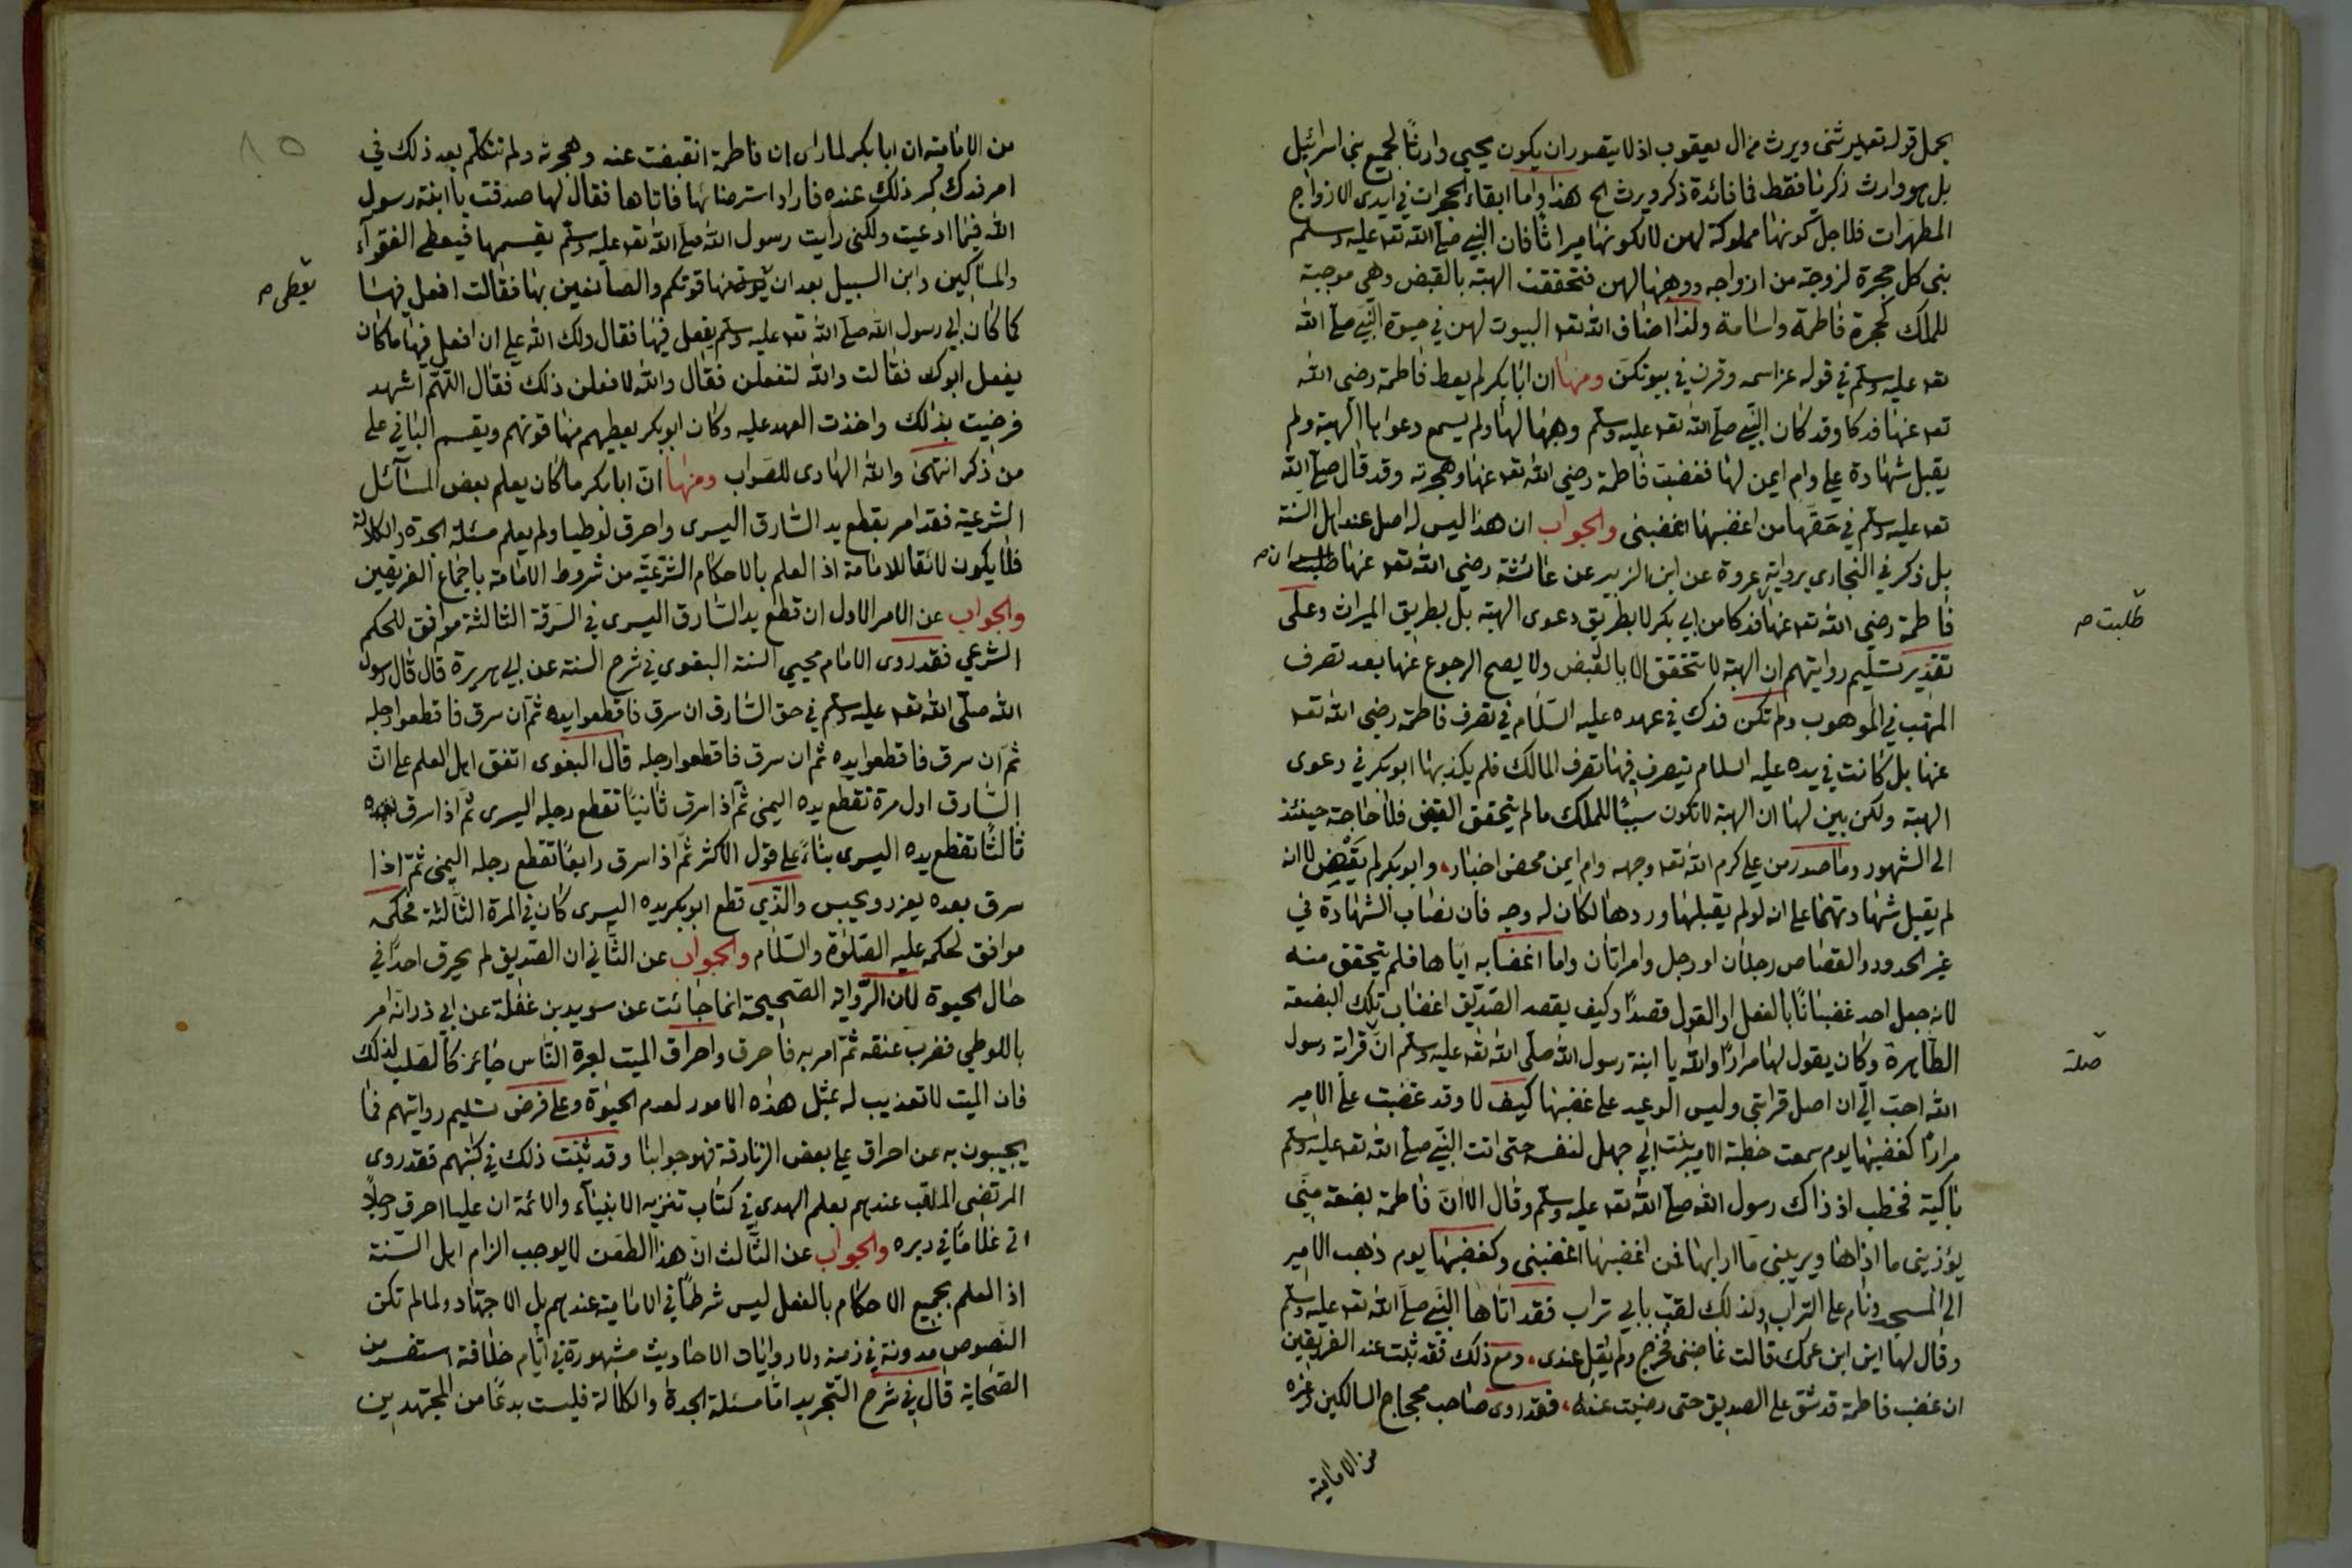 يجمل قوله تعه يرثنى ويرث من ال يعقوب اذ لا يتصور ان يكون يحيى وارثًا لجميع بنى اسرائيل
بل هو وارث زكريا فقط فما فائدة ذكر ويرث الخ هذا واما ابقاء الحجرات في ايدى الازواج
المطهرات فلاجل كونها مملوكة لهن لا لكونها ميراثًا فان النبي صلّى الله تعه عليه وسلم
بنى كل حجرة لزوجة من ازواجه ووهبها لهن فتحققت الهبة بالقبض وهي موجبة
للملك كحجرة فاطمة واسامة ولذا اضاف الله تعه البيوت لهن في حيوة النبي صلّى الله
تعه عليه وسلّم في قوله عز اسمه وقرن في بيوتكن ومنها ان ابا بكر لم يعط فاطمة رضي الله
تعه عنها فدكا وقد كان النبي صلّى الله تعه عليه وسلّم وهبها لها ولم يسمع دعواها الهبة ولم
يقبل شهادة علي وام ايمن لها فغضبت فاطمة رضي الله تعه عنها وهجرته وقد قال صلّى الله
تعه عليه وسلّم في حقها من اغضبها اغضبنى والجواب ان هذا ليس له اصل عند اهل السنة
بل ذكر في البخاري برواية عروة عن ابن الزبير عن عائشة رضي الله تعه عنها طلبت ان
طلبت صح
فاطمة رضي الله تعه عنها فدكا من ابي بكر لا بطريق دعوى الهبة بل بطريق الميراث وعلى
تقدير تسليم روايتهم ان الهبة لا تتحقق الا بالقبض ولا يصح الرجوع عنها بعد تصرف
المتهب في الموهوب ولم تكن فدك في عهده عليه السّلام في تصرف فاطمة رضي الله تعه
عنها بل كانت في يده عليه السلام يتصرف فيها تصرف المالك فلم يكذبها ابو بكر في دعوى
الهبة ولكن بين لها ان الهبة لا تكون سببًا للملك ما لم يتحقق القبض فلا حاجة حينئذ
الى الشهود وما صدر من علي كرم الله تعه وجهه وام ايمن محض اخبار، وابو بكر لم يقض لا انه
لم يقبل شهادتهما على انه لو لم يقبلها وردها لكان له وجه فان نصاب الشهادة في
غير الحدود والقصاص رجلان او رجل وامراتان واما اغضابه اياها فلم يتحقق منه
لانه جعل احد غضبانًا بالفعل او القول قصدًا وكيف يقصد الصّدّيق اغضاب تلك البضعة
الطاهرة وكان يقول لها مرارًا والله يا ابنة رسول الله صلّى الله تعه عليه وسلّم انّ قرابة رسول
صلة
الله احبّ الّي ان اصل قرابتي وليس الوعيد على غضبها كيف لا وقد غضبت على الامير
مرارًا كغضبها يوم سمعت خطبة الامير بنت ابي جهل لنفسه حتى اتت النبي صلّى الله تعه عليه وسلّم
باكية فخطب اذ ذاك رسول الله صلّى الله تعه عليه وسلّم وقال الا ان فاطمة بضعة منّي
يؤذيني ما اذاها ويريبني ما ارابها فمن اغضبها اغضبنى وكغضبها يوم ذهب الامير
الى المسجد ونام على التراب ولذلك لقب بابي تراب فقد اتاها النبي صلّى الله تعه عليه وسلّم
وقال لها اين ابن عمك قالت غاضبنى فخرج ولم يقل عندى، ومع ذلك فقد ثبت عند الفريقين
ان غضب فاطمة قد شق على الصديق حتى رضيت عنه، فقد روى صاحب محجاج السالكين وغيره
من الامامية
من الامامية ان ابا بكر لما راى ان فاطمة انقبضت عنه وهجرته ولم تتكلم بعد ذلك في
امر فدك كبر ذلك عنده فاراد استرضائها فاتاها فقال لها صدقت يا ابنة رسول
الله فيما ادعيت ولكنى رأيت رسول الله صلّى الله تعه عليه وسلّم يقسمها فيعطى الفقراء
والمساكين وابن السبيل بعد ان يؤت منها قوتكم والصانعين بها فقالت افعل فيها
يعطى صح
كما كان ابي رسول الله صلّى الله تعه عليه وسلّم يفعل فيها فقال ولك الله علي ان افعل فيها ما كان
يفعل ابوك فقالت والله لتفعلن فقال والله لافعلن ذلك فقال اللّهمّ اشهد
فرضيت بذلك واخذت العهد عليه وكان ابو بكر يعطيهم منها قوتهم ويقسم الباقي على
من ذكر انتهى والله الهادى للصّواب ومنها انّ ابا بكر ما كان يعلم بعض المسآئل
الشرعيّة فقد امر بقطع يد السّارق اليسرى واحرق لوطيا ولم يعلم مسئلة الجدة والكلالة
فلا يكون لائقا للامامة اذ العلم بالاحكام الشرعيّة من شروط الامامة باجماع الفريقين
والجواب عن الامر الاول ان قطع يد السّارق اليسرى في السّرقة الثالثة موافق للحكم
الشرعي فقد روى الامام محيي السنة البغوى في شرح السنة عن ابي هريرة قال قال رسول
الله صلّى الله تعه عليه وسلّم في حق السّارق ان سرق فاقطعوا يده ثمّ ان سرق فاقطعوا رجله
ثمّ ان سرق فاقطعوا يده ثم ان سرق فاقطعوا رجله قال البغوى اتفق اهل العلم على انّ
السّارق اول مرة تقطع يده اليمنى ثمّ اذا سرق ثانيًا تقطع رجله اليسرى ثمّ اذا سرق
ثالثًا تقطع يده اليسرى بناءً على قول الاكثر ثمّ اذا سرق رابعًا تقطع رجله اليمنى ثمّ اذا
سرق بعده يعزر ويحبس والّذي قطع ابو بكر يده اليسرى كان في المرة الثالثة فحكمه
موافق لحكمه عليه الصّلوة والسّلام والجواب عن الثّاني ان الصديق لم يحرق احدًا في
حال الحيوة لان الرّواية الصّحيحة انما جائت عن سويد بن غفلة عن ابي ذر انّه امر
باللوطي فضرب عنقه ثمّ امر به فاحرق واحراق الميت لعبرة النّاس جائز كالصلب لذلك
فان الميت لا تعذيب له بمثل هذه الامور لعدم الحيوة وعلى فرض تسليم روايتهم فما
يجيبون به عن احراق علي بعض الزنادقة فهو جوابنا وقد ثبت ذلك في كتبهم فقد روى
المرتضى الملقب عندهم بعلم الهدى في كتاب تنزيه الانبيآء والائمة ان عليا احرق رجلًا
اتى غلامًا في دبره والجواب عن الثّالث انّ هذا الطعن لا يوجب الزام اهل السّنة
اذ العلم بجميع الاحكام بالفعل ليس شرطًا في الامامة عندهم بل الاجتهاد ولما لم تكن
النصوص مدونة في زمنه ولا روايات الاحاديث مشهورة في ايّام خلافته استفسر من
الصّحابة قال في شرح التّجريد امّا مسئلة الجدة والكلالة فليست بدعًا من المجتهدين